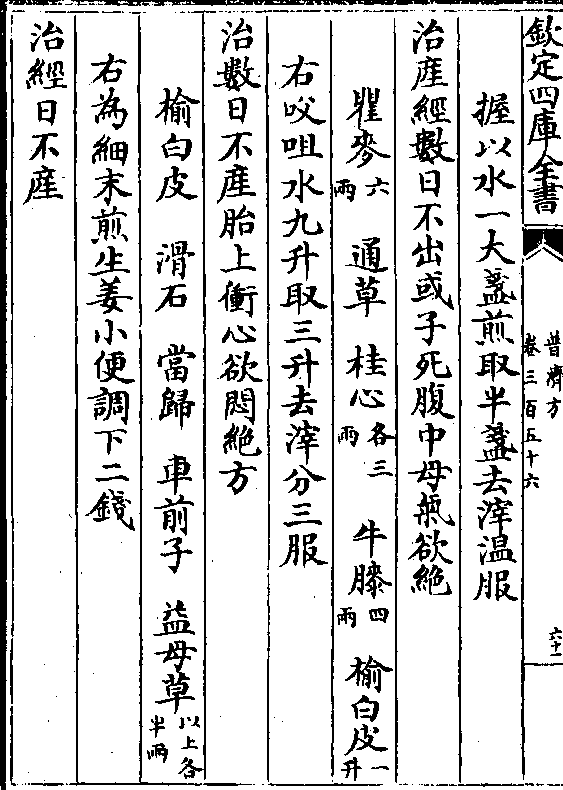 欽定四庫全書
普濟方
卷三百五十六
六十一
握以水一大盞煎取半盞去滓温服
治産經數日不出或子死腹中母氣欲絶
瞿麥六兩 通草 桂心各三兩 牛膝四兩 榆白皮一升
右㕮咀水九升取三升去滓分三服
治數日不産胎上衝心欲悶絶方
榆白皮 滑石 當歸 車前子 益母草以上各半兩
右為細末煎生姜小便調下二錢
治經日不産